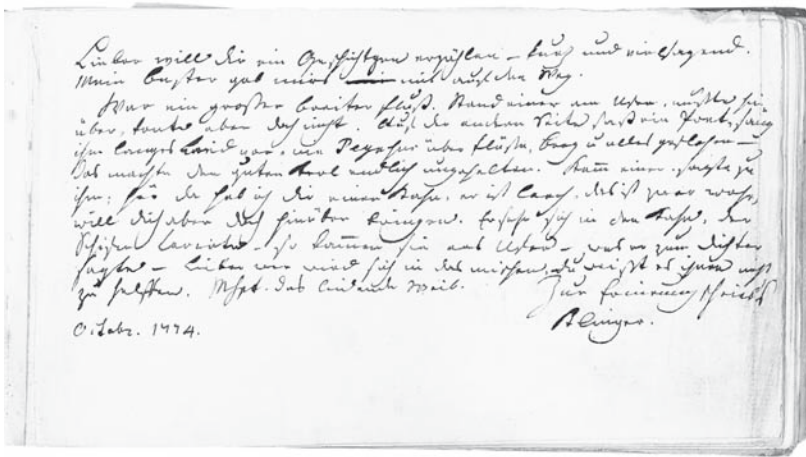 Lieber will dir ein Geschichtgen erzählen – kurz und vielsagend.
Mein bester gab mirs mit auf den Weg.
War ein grosser breiter Fluß. Stand einer am Ufer, mußte hin
über, konte aber doch nicht. Auf der andern Seite saß ein Poet, sang
ihm langes Lied vor, wie Pegasus über Flüsse, Berg u alles geflohen –
Das machte den guten Kerl endlich ungehalten. Kam einer, sagte zu
ihm; hier da hab ich dir einen Kahn, er ist leck, das ist zwar wahr,
will dich aber doch hinüber bringen. Er setzte sich in den Kahn, der
Schiffer – so kamen sie ans Ufer – was er zum Dichter
sagte – Lieber wer wird sich in das mischen, du weißt es ihnen nicht
zu helffen. das leidende Weib. Zur Erinnerung schriebs
Octobr. 1774. Klinger.